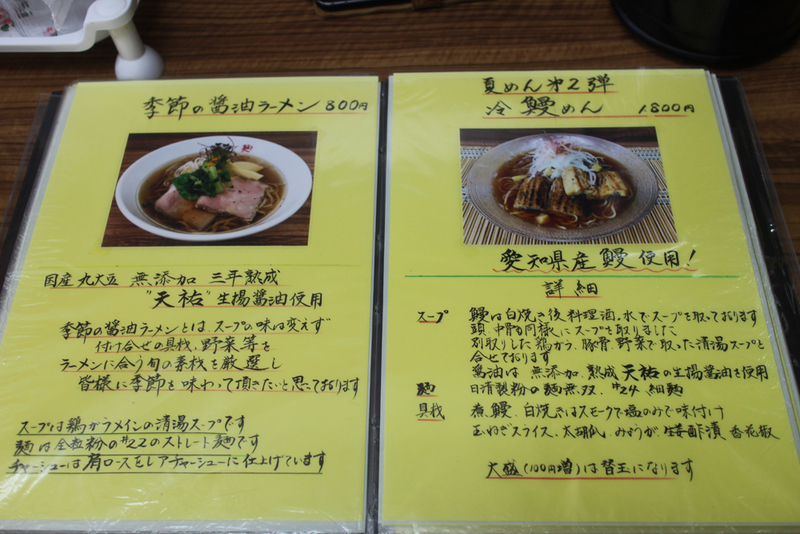 季節の醤油ラーメン 800円
国産 丸大豆 無添加 三年熟成
"天祐"生揚醤油使用
季節の醤油ラーメンとは スープの味は変えず
付け合せの具材、野菜等を
ラーメンに合う旬の素材を厳選し
皆様に季節を味わって頂きたいと思っております
スープは鶏ガラメインの清湯スープです
麺は全粒粉の#22のストレート麺です
チャーシューは肩ロースをレアチャーシューに仕上げています
夏めん第2弾
冷 鰻めん 1,800円
愛知県産鰻使用!
詳細
スープ 鰻は白焼き後 料理酒、水でスープを取っております
頭、中骨も同様にスープを取りました
別取りした鶏ガラ、豚骨、野菜で取った清湯スープと
合せております
醤油は 無添加、熟成 天祐の生揚醤油を使用
麺 日清製粉の麺無双、#24 細麺
具材 煮鰻、白焼きはスモークで塩のみで味付け
玉ねぎスライス、太胡瓜、みょうが 生姜酢漬 香花椒
大盛(100円増)は替玉になります